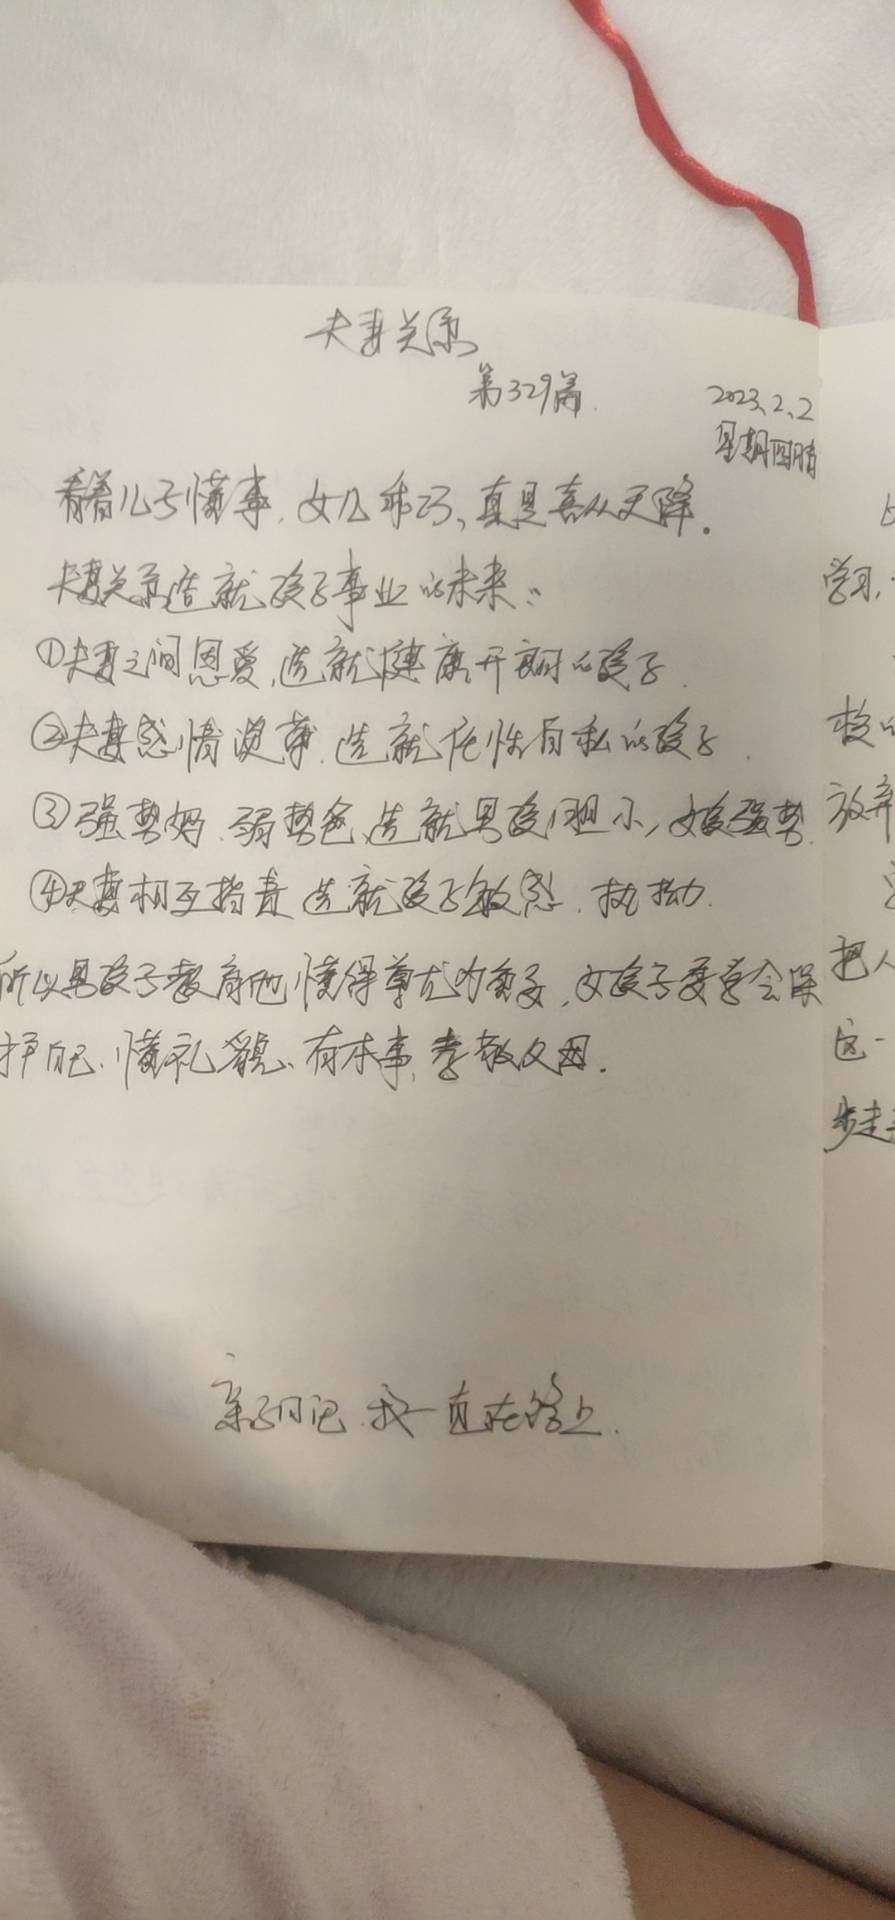 夫妻关系
第329篇.
2023.2.2
星期四晴
看着儿子懂事,女儿乖巧,真是喜从天降。
夫妻关系造就孩子事业的未来:
①夫妻之间恩爱,造就健康开朗的孩子.
②夫妻感情淡薄.造就任性自私的孩子.
③强势妈.弱势爸,造就男孩胆小,女孩强势.
④夫妻相互指责造就孩子敏感.执拗.
所以男孩子教育他懂得尊尤为重要,女孩子要学会保
护自己.懂礼貌、有本事,孝敬父母.
亲子日记.我一直在路上.
学习,
校的
放弃
把人
这一
步走